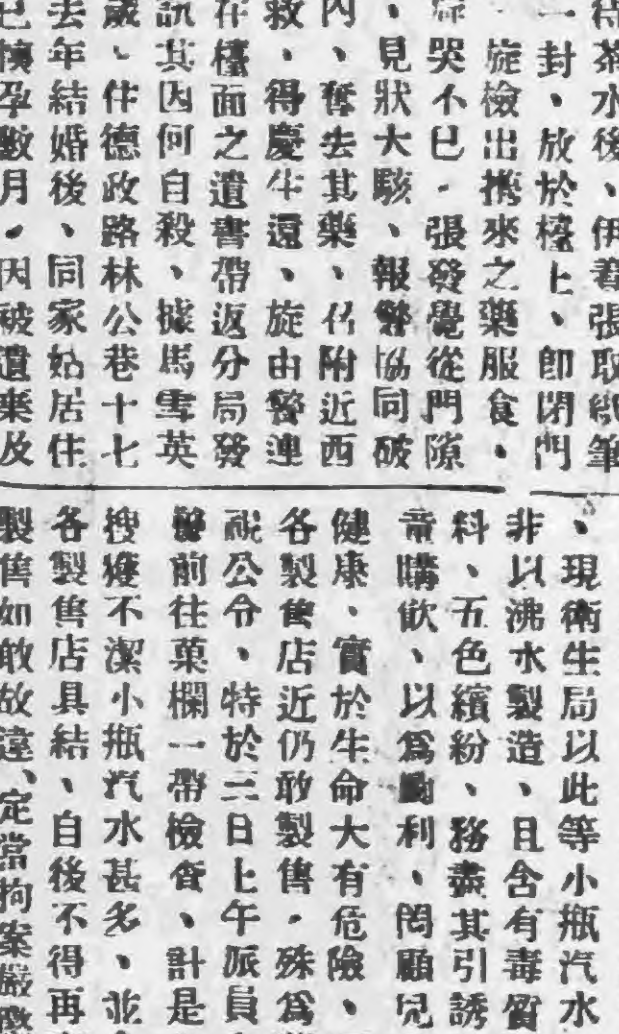 待茶水後、伊着張取紙筆
一封、放於檯上、卽閉門
旋檢出携來之藥服食、
哭不已、張發覺從門隙
、見狀大駭、報警協同破
內、奪去其藥、召附近西
救、得慶生還、旋由警連
在檯面之遺書帶返分局發
訊其因何自殺、據馬雪英
歲、住德政路林公巷十七
去年結婚後、同家姑居住
已懷孕數月、因被遺棄及
、現衛生局以此等小瓶汽水
非以沸水製造、且含有毒質
料、五色繽紛、務盡其引誘
童購飲、以爲圖利、罔顧兒
健康、實於生命大有危險、
各製售店近仍敢製售、殊爲
視公令、特於三日上午派員
警前往菓欄一帶檢查、計是
搜獲不潔小瓶汽水甚多、並
各製售店具結、自後不得再
製售如敢故違、定當拘案嚴